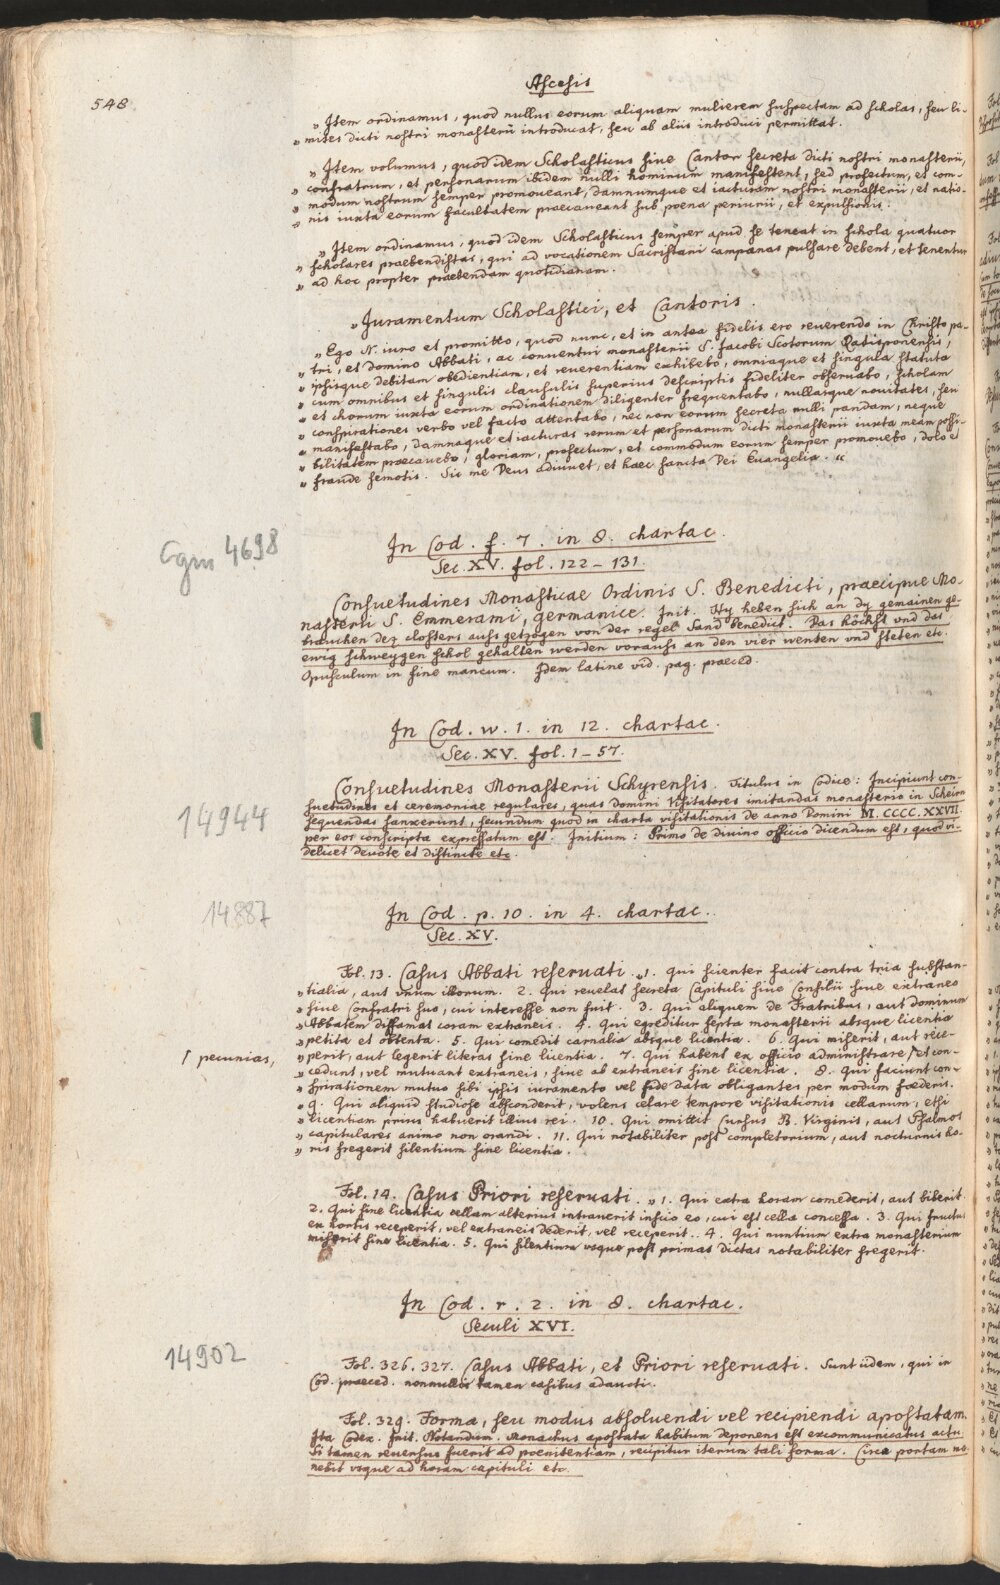 548.
Ascesis
„ Item ordinamus, quod nullus eorum aliquam mulierem suspectam ad scholas, seu li-
„ mites dicti nostri monasterii introducat, seu ab aliis introduci permittat.
„ Item volumus, quod idem Scholasticus sive Cantor secreta dicti nostri monasterii,
„ confratrum, et personarum ibidem nulli hominum manifestent, sed profectum, et com-
„ modum nostrum semper promoveant, damnumque et iacturam nostri monasterii, et natio-
„ nis iuxta eorum facultatem praecaveant sub poena periurii, et expulsionis.
„ Item ordinamus, quod idem Scholasticus semper apud se teneat in schola quatuor
„ scholares praebendistas, qui ad vocationem Sacristani campanas pulsare debent, et tenentur
„ ad hoc propter praebendam quotidianam.
„ Juramentum Scholastici, et Cantoris.
„ Ego N. iuro et promitto, quod nunc, et in antea fidelis ero reuerendo in Christo pa-
„ tri, et domino Abbati, ac conuentui monasterii S. Jacobi Scotorum Ratisponensis,
„ ipsisque debitam obedientiam, et reuerentiam exhibebo, omniaque et singula statuta
„ cum omnibus et singulis clausulis superius descriptis fideliter obseruabo, scholam
„ et chorum iuxta eorum ordinationem diligenter frequentabo, nullasque nouitates, seu
„ conspirationes verbo vel facto attentabo, nec non eorum secreta nulli pandam, neque
„ manifestabo, damnaque et iacturas rerum et personarum dicti monasterii iuxta meam possi-
„ bilitatem praecauebo, gloriam, profectum, et commodum eorum semper promouebo, dolo et
„ fraude semotis. Sic me Deus adiuuet, et haec sancta Dei Euangelia. “
Cgm 4698
In Cod. f. 7. in 8. chartac.
Sec. XV. fol. 122 – 131.
Consuetudines Monasticae Ordinis S. Benedicti, praecipue Mo-
nasterii S. Emmerami, germanice. Init. Hy heben sich an dy gemainen ge-
brauchen dez closters auss getzogen von der regel Sand Benedict. Das höchst vnd das
ewig schweygen schol gehalten werden vorauss an den vier wenten vnd steten etc.
Opusculum in fine mancum. Idem latine vid. pag. praeced.
In Cod. w. 1. in 12. chartac.
Sec. XV. fol. 1 – 57.
14944
Consuetudines Monasterii Schyrensis. Titulus in Codice: Incipiunt con-
suetudines et ceremoniae regulares, quas domini Visitatores imitandas monasterio in Scheirn
sequendas sanxerunt, secundum quod in charta visitationis de anno Domini M.CCCC.XXVII.
per eos conscripta expressatum est. Initium: Primo de diuino officio dicendum est, quod vi-
delicet deuote et distincte etc.
14887
In Cod. p. 10. in 4. chartac.
Sec. XV.
Fol. 13. Casus Abbati reseruati. „ 1. Qui scienter facit contra tria substan-
„ tialia, aut vnum illorum. 2. Qui reuelat secreta Capituli siue Consilii siue extraneo
„ siue Confratri suo, cui interesse non fuit. 3. Qui aliquem de Fratribus, aut dominum
„ Abbatem diffamat coram extraneis. 4. Qui egreditur septa monasterii absque licentia
„ petita et obtenta. 5. Qui comedit carnalia absque licentia. 6. Qui miserit, aut rece-
„ perit, aut legerit literas sine licentia. 7. Qui habent ex officio administrare ſ et con-
ſ pecunias,
„ cedunt, vel mutuant extraneis, siue ab extraneis sine licentia. 8. Qui faciunt con-
„ spirationem mutuo sibi ipsis iuramento vel fide data obligantes per modum foederis.
„ 9. Qui aliquid studiose absconderit, volens celare tempore visitationis cellarum, etsi
„ licentiam prius habuerit illius rei. 10. Qui omittit Cursus B. Virginis, aut Psalmos
„ capitulares animo non orandi. 11. Qui notabiliter post completorium, aut nocturnis ho-
„ ris fregerit silentium sine licentia.
Fol. 14. Casus Priori reseruati. „ 1. Qui extra horam comederit, aut biberit.
2. Qui sine licentia cellam alterius intrauerit inscio eo, cui est cella concessa. 3. Qui fructus
ex hortis receperit, vel extraneis dederit, vel receperit. 4. Qui nuntium extra monasterium
miserit sine licentia. 5. Qui silentium vsque post primas dictas notabiliter fregerit.
In Cod. r. 2. in 8. chartac.
Seculi XVI.
14902
Fol. 326. 327. Casus Abbati, et Priori reseruati. Sunt iidem, qui in
Cod. praeced. nonnullis tamen casibus adaucti.
Fol. 329. Forma, seu modus absoluendi vel recipiendi apostatam.
Ita Codex. Init. Notandum. Monachus apostata habitum deponens est excommunicatus actu.
Si tamen reuersus fuerit ad poenitentiam, recipitur iterum tali forma. Circa portam ma-
nebit vsque ad horam capituli etc.